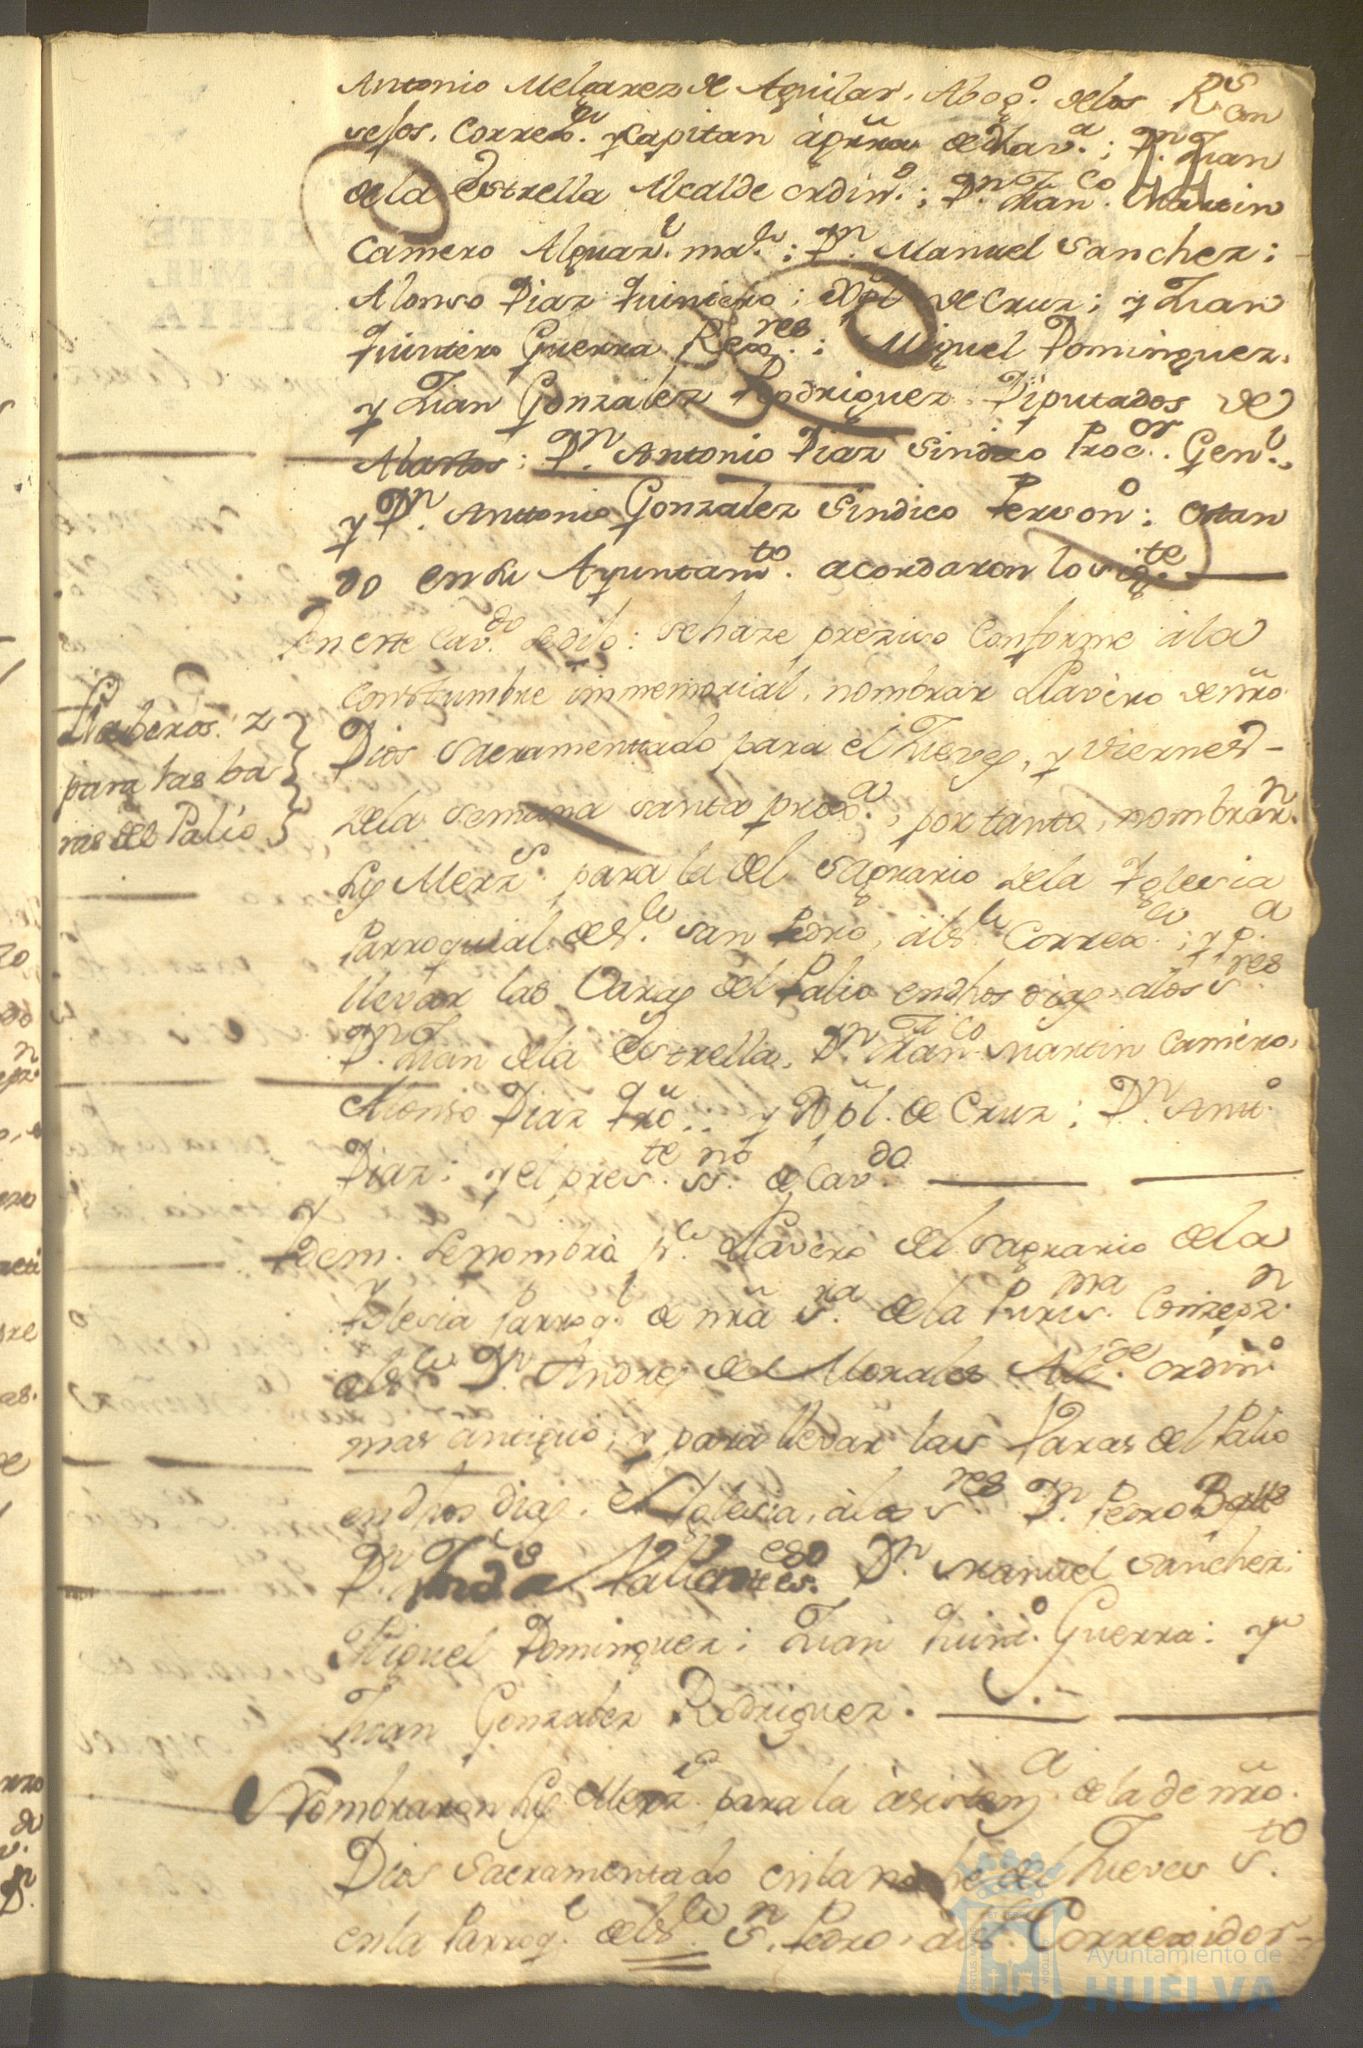 Antonio Melgarez de Aguilar, Abog.o delos R.s Con
sejos, Correg.r y Capitan à grra de dha v.a; D.n Juan
de la Estrella Alcalde ordin.o; D.n Fran.co Martin
Camero Alguaz.l ma.r; D.n Manuel Sanchez;
Alonso Diaz Quintero; Xpl de Cruz; y Juan
Quintero Guerra Reg.res; Miguel Dominguez,
y Juan Gonzalez Rodriguez Diputados de
Abastos; D.n Antonio Diaz Sindico Proc.or Gen.l,
y D.n Antonio Gonzalez Sindico Person.o; estan
do en su Ayuntam.to acordaron lo sig.te
En este Cav.do se dijo: se haze preziso conforme à la
Constumbre immemorial, nombrar Llavèro de nro
Llaberos z
para las ba
ras del Palio
Dios Sacramentado para el Jueves, y Viernes d-
dela Semana Santa prox.a; por tanto, nombrar.n
sus Merz.s para la del Sagrario dela Yglesia
Parroquial de S.r San Pedro, al S.r Correg.r; y p.a
llevar las Varas del Palio en dhos dias, alos S.res
D.n Juan dela Estrella, D.n Fran.co Martin Camèro,
Alonso Diaz Qro., y Xpl. de Cruz; D.n Ant.o
Diaz; y el pres.te ss.no de Cav.do
Ydem. Se nombrò p.r Llavèro del Sagrario dela
Yglesia Parroq.l de nra S.ra dela Puris.ma Conzepz.n
al S.r D.n Andres de Morales Alc.de ordin.o
mas antiguo; y para llevar las Varas del Palio
en dhos dias, è Yglesia, à los S.res D.n Pedro
D.n Manuel Sanchez;
Miguel Dominguez; Juan Quint.o Guerra; y
Juan Gonzalez Rodriguez.
Nombraron sus Merz.s para la àsistenz.a dela de nro.
Dios Sacramentado en la noche del Jueves S.to
en la Parroq.l del S.r S.n Pedro, al S.r Corregidor-
Ayuntamiento de
HUELVA